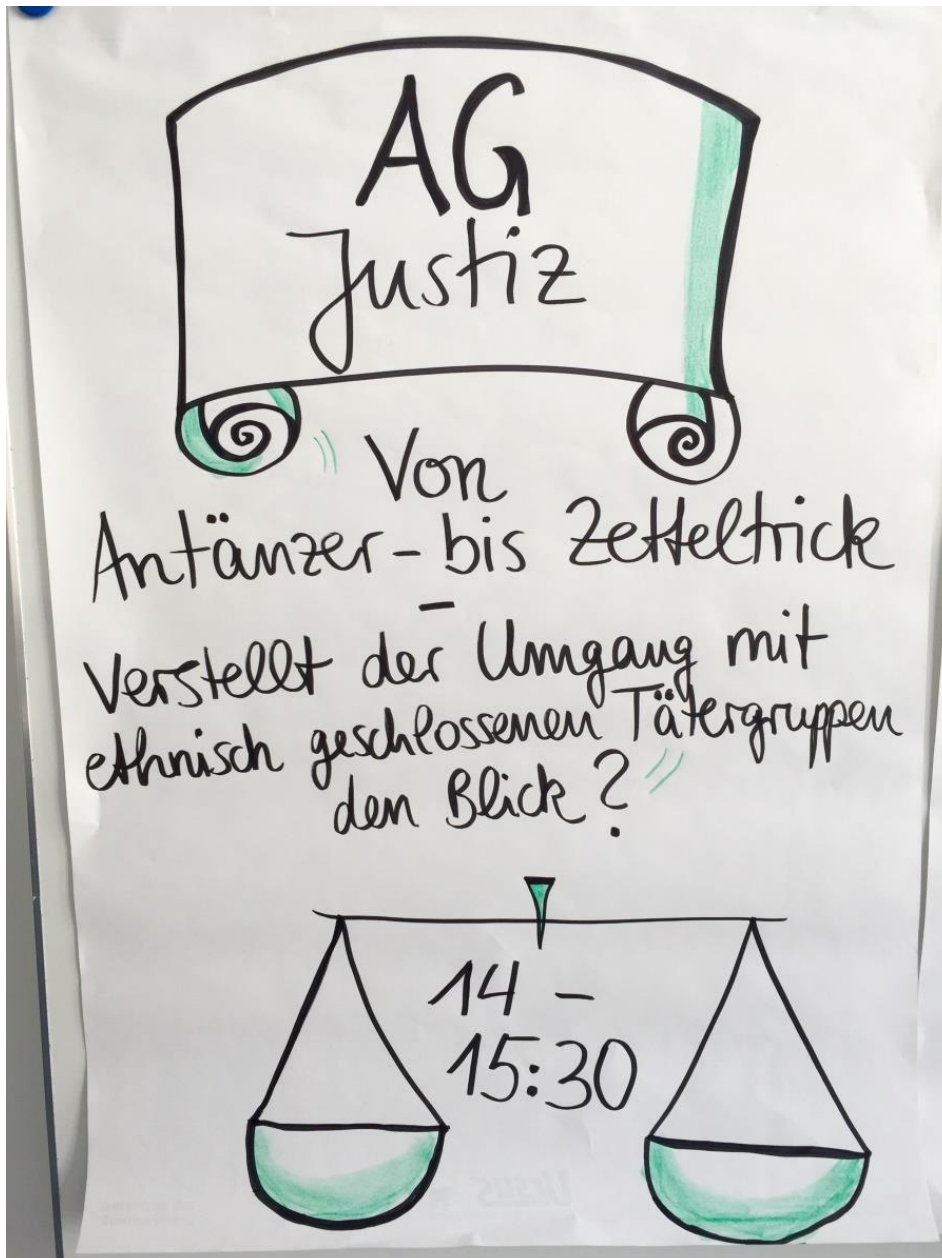 AG
Justiz
Von
Antänzer- bis Zetteltrick
-
Verstellt der Umgang mit
ethnisch geschlossenen Tätergruppen
den Blick?
14 -
15:30